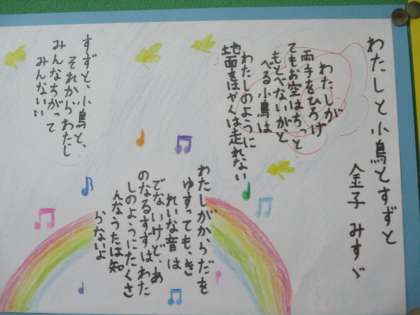 わたしと小鳥とすずと
金子 みすゞ
わたしが
両手をひろげ
てもお空はちっと
もとべないがと
べる小鳥は
わたしのように
地面をはやくは走れない
わたしがからだを
ゆすっても、き
れいな音は
でないけど、あ
のなるすずはわた
しのようにたくさ
んなうたは知
らないよ
すずと、小鳥と、
それからわたし
みんなちがって
みんないい